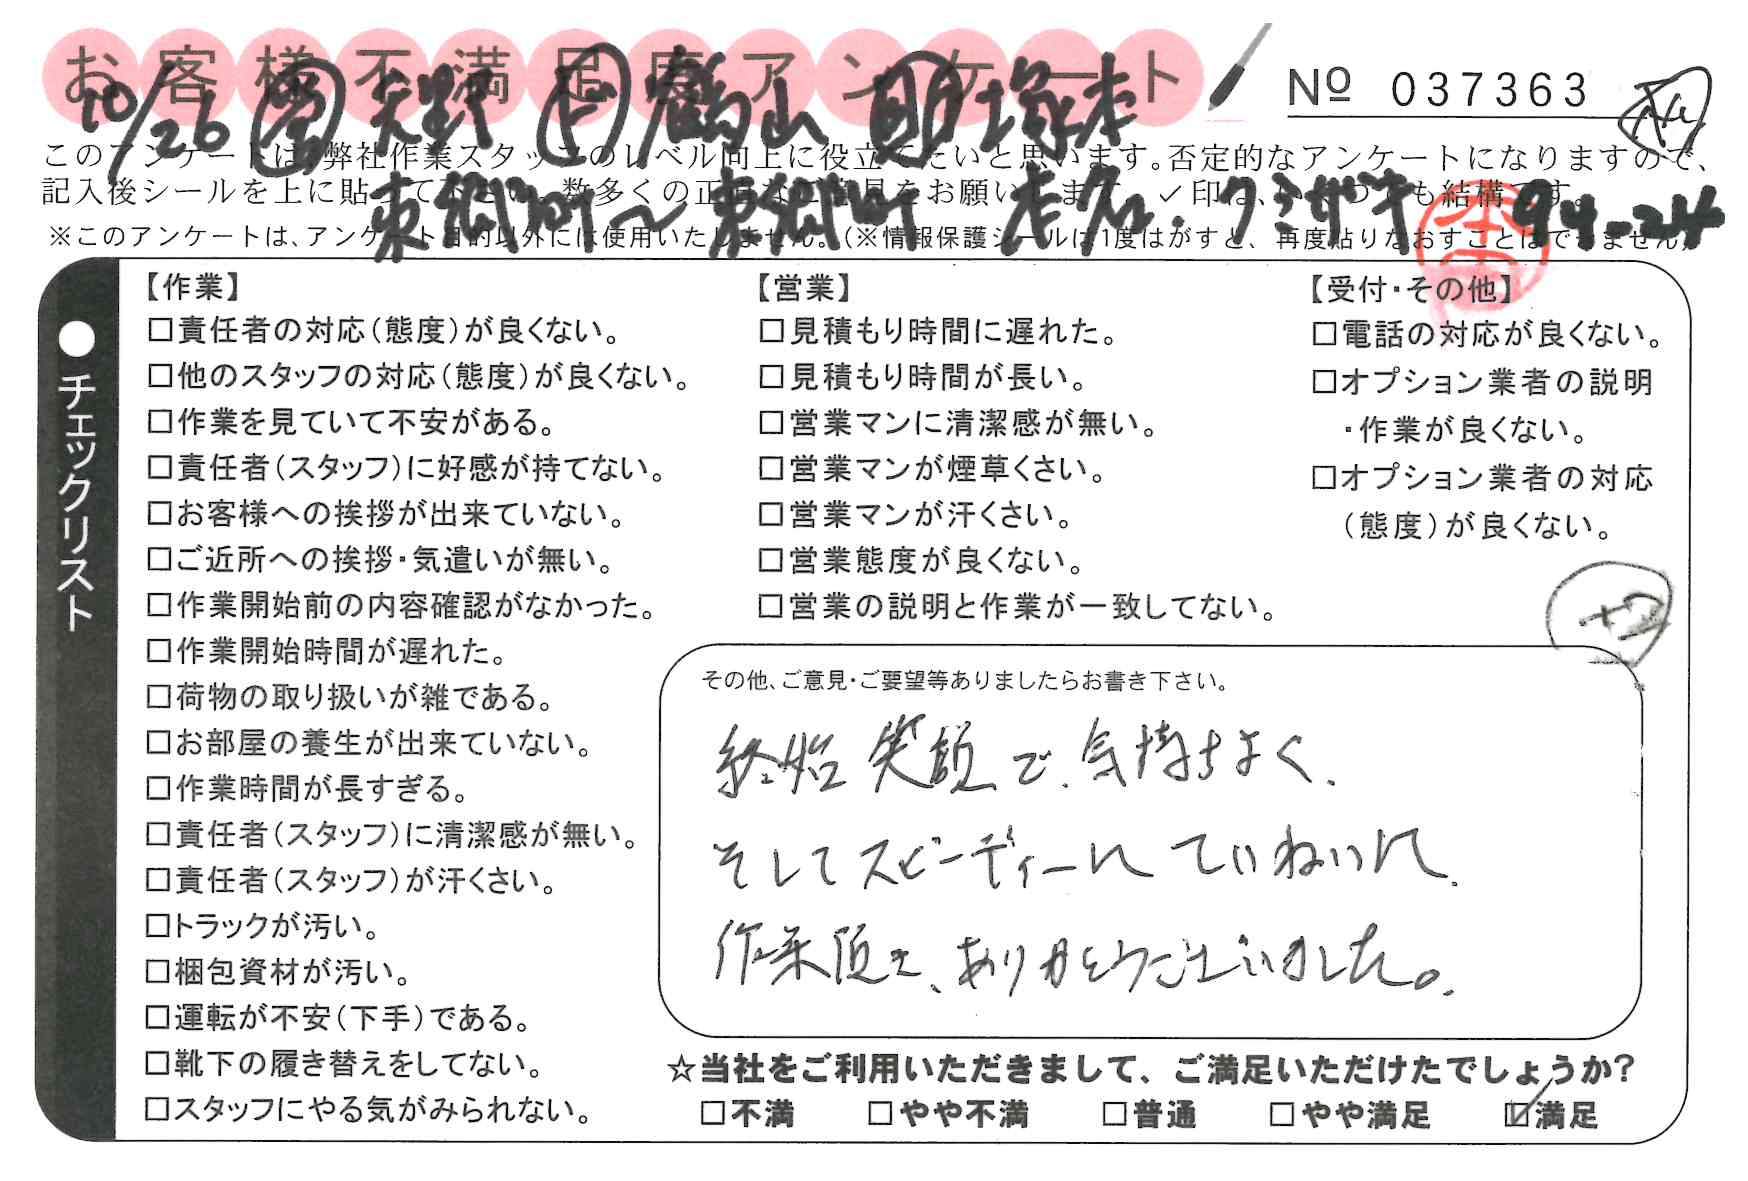 お客様不満足度アンケート
№ 037363
10/26 矢野 鶴山 助 塚本
このアンケートは、弊社作業スタッフのレベル向上に役立てたいと思います。否定的なアンケートになりますので、
記入後シールを上に貼って下さい。数多くの正直なご意見をお願いします。✓印は、いくつでも結構です。
東郷町〜東郷町 クミザキ 94-24
※このアンケートは、アンケート目的以外には使用いたしません。(※情報保護シールは1度はがすと、再度貼りなおすことはできません)
●チェックリスト
【作業】
□責任者の対応(態度)が良くない。
□他のスタッフの対応(態度)が良くない。
□作業を見ていて不安がある。
□責任者(スタッフ)に好感が持てない。
□お客様への挨拶が出来ていない。
□ご近所への挨拶・気遣いが無い。
□作業開始前の内容確認がなかった。
□作業開始時間が遅れた。
□荷物の取り扱いが雑である。
□お部屋の養生が出来ていない。
□作業時間が長すぎる。
□責任者(スタッフ)に清潔感が無い。
□責任者(スタッフ)が汗くさい。
□トラックが汚い。
□梱包資材が汚い。
□運転が不安(下手)である。
□靴下の履き替えをしてない。
□スタッフにやる気がみられない。
【営業】
□見積もり時間に遅れた。
□見積もり時間が長い。
□営業マンに清潔感が無い。
□営業マンが煙草くさい。
□営業マンが汗くさい。
□営業態度が良くない。
□営業の説明と作業が一致してない。
【受付・その他】
□電話の対応が良くない。
□オプション業者の説明
・作業が良くない。
□オプション業者の対応
(態度)が良くない。
+2
その他、ご意見・ご要望等ありましたらお書き下さい。
終始笑顔で、気持ちよく、
そしてスピーディーに ていねいに、
作業頂き、ありがとうございました。
☆当社をご利用いただきまして、ご満足いただけたでしょうか?
□不満 □やや不満 □普通 □やや満足 ☑満足